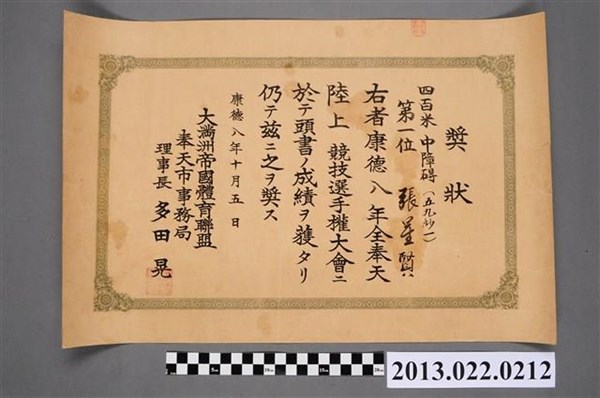 獎狀
四百米中障碍(五九秒一)
第一位 張星賢
右者康德八年全奉天
陸上競技選手權大會ニ
於テ頭書ノ成績ヲ獲タリ
仍テ茲ニ之ヲ奬ス
康德八年十月五日
大滿洲帝國體育聯盟
奉天市事務局
理事長 多田晃
2013.022.0212